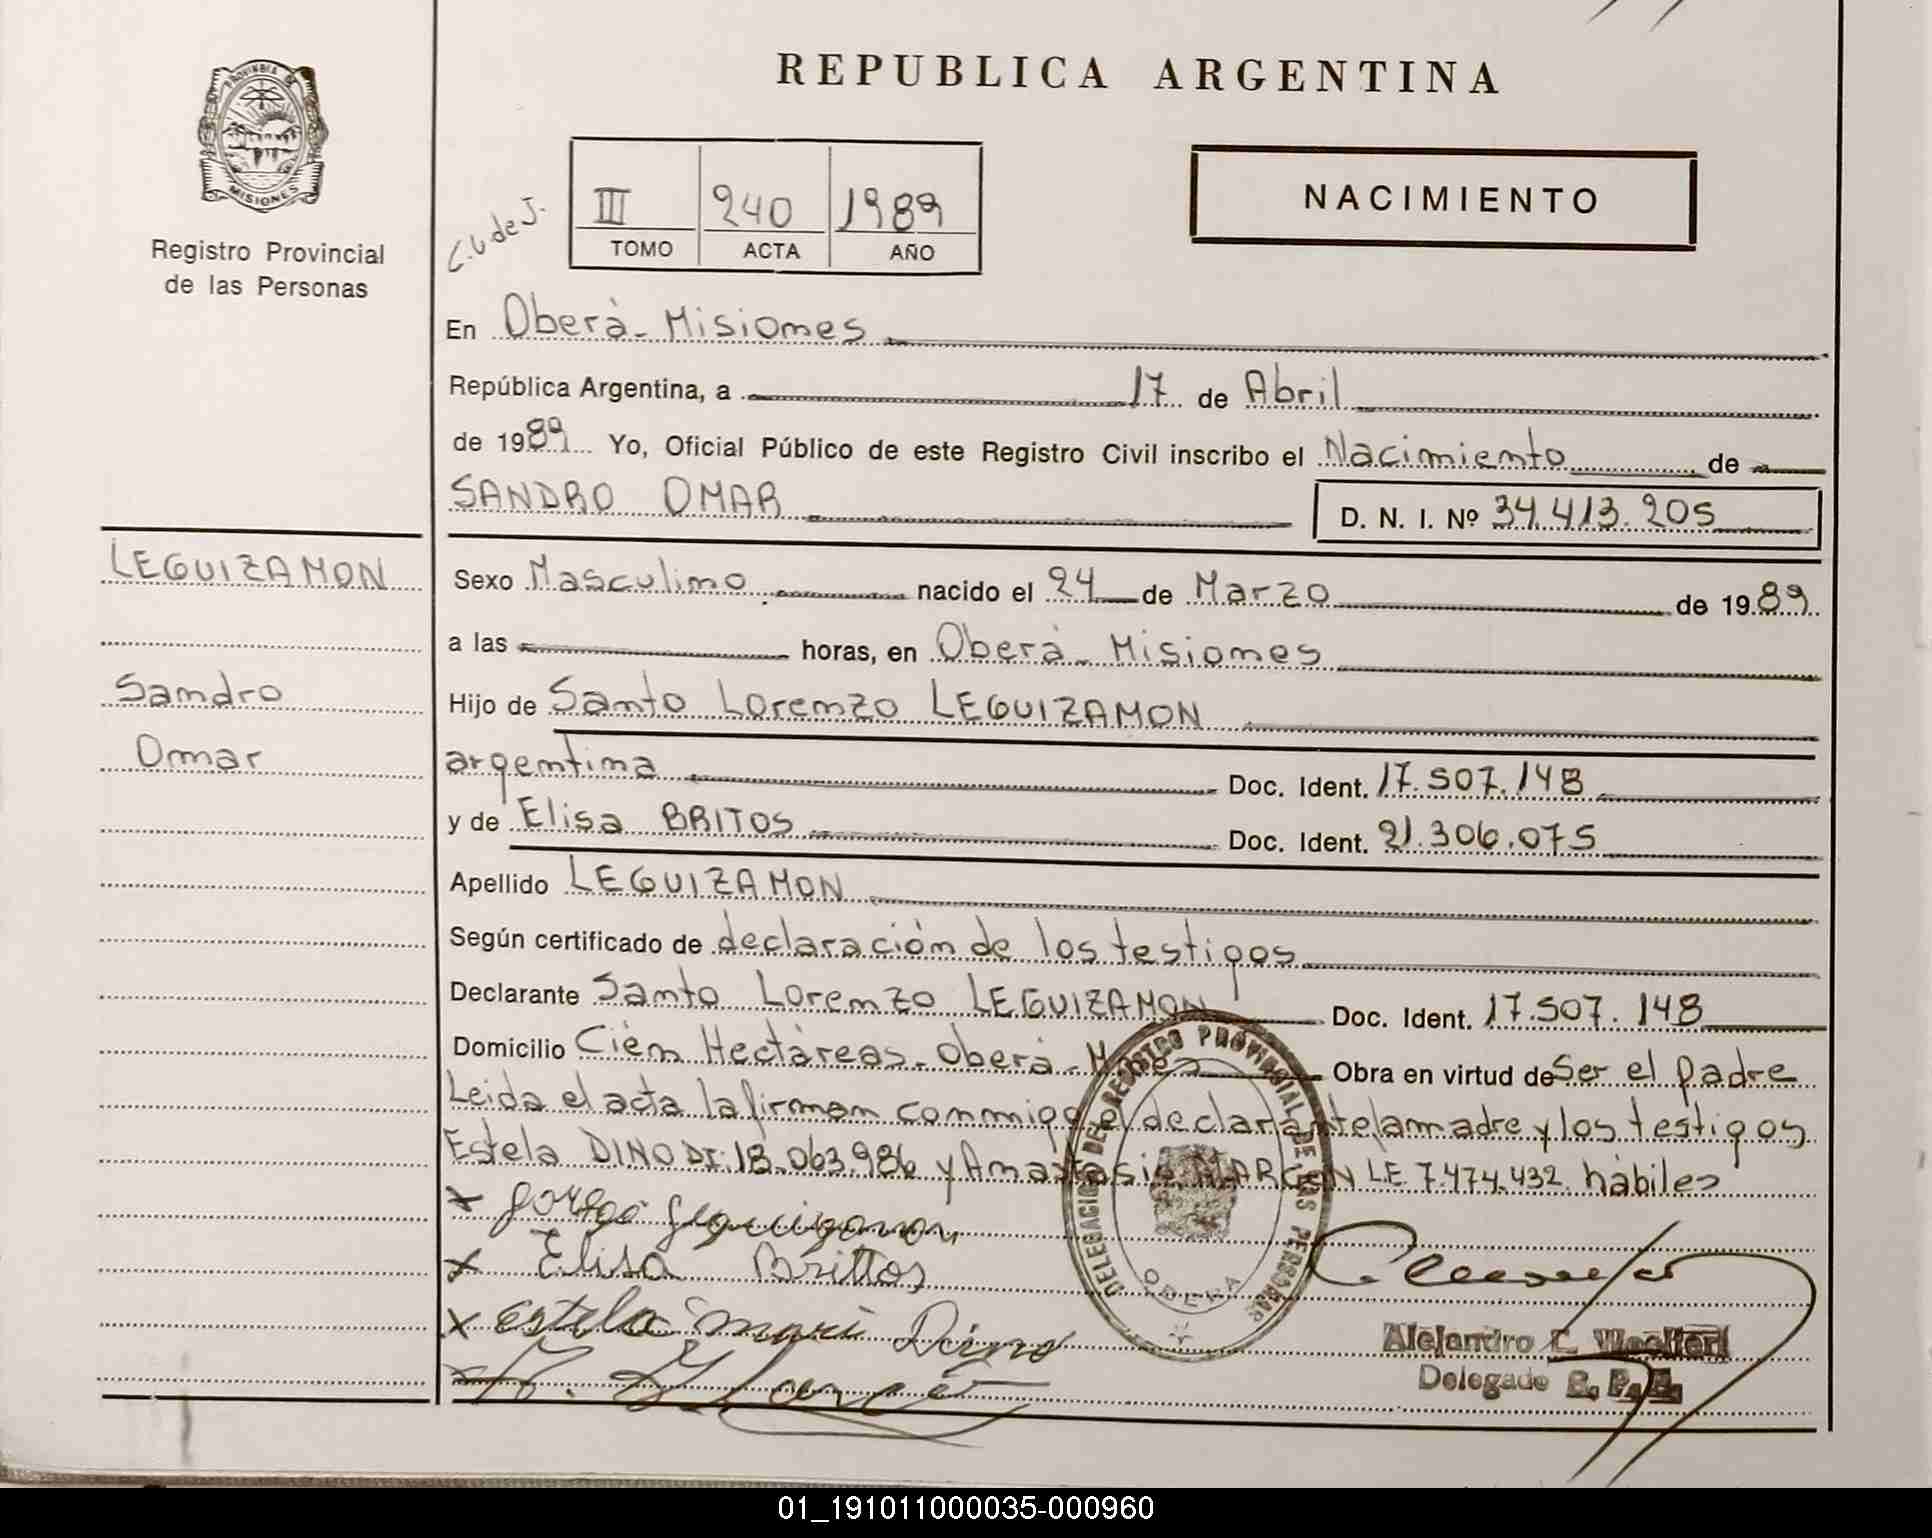 REPUBLICA ARGENTINA
PROVINCIA DE
MISIONES
Registro Provincial
de las Personas
C.U de J.
III 240 1989
TOMO ACTA AÑO
NACIMIENTO
En Oberà - Misiones
República Argentina, a 17 de Abril
de 1989 Yo, Oficial Público de este Registro Civil inscribo el Nacimiento de
SANDRO OMAR D. N. I. Nº 34.413.205
LEGUIZAMON
Sandro
Omar
Sexo Masculino nacido el 24 de Marzo de 1989
a las horas, en Oberà - Misiones
Hijo de Santo Lorenzo LEGUIZAMON
argentina Doc. Ident. 17.507.148
y de Elisa BRITOS Doc. Ident. 21.306.075
Apellido LEGUIZAMON
Según certificado de declaración de los testigos
Declarante Santo Lorenzo LEGUIZAMON Doc. Ident. 17.507.148
Domicilio Cién Hectàreas - Oberà - Mnes Obra en virtud de Ser el padre
Leida el acta la firman conmigo el declarante la madre y los testigos
Estela DINO DI: 18.063.986 y Anastasio MARCEN L.E. 7.474.432 hàbiles
DELEGACION DEL REGISTRO PROVINCIAL DE LAS PERSONAS
OBERA
x Elisa Brittos
x estela mari Dino
Alejandro C.
Delegado R. P. P.
01_191011000035-000960